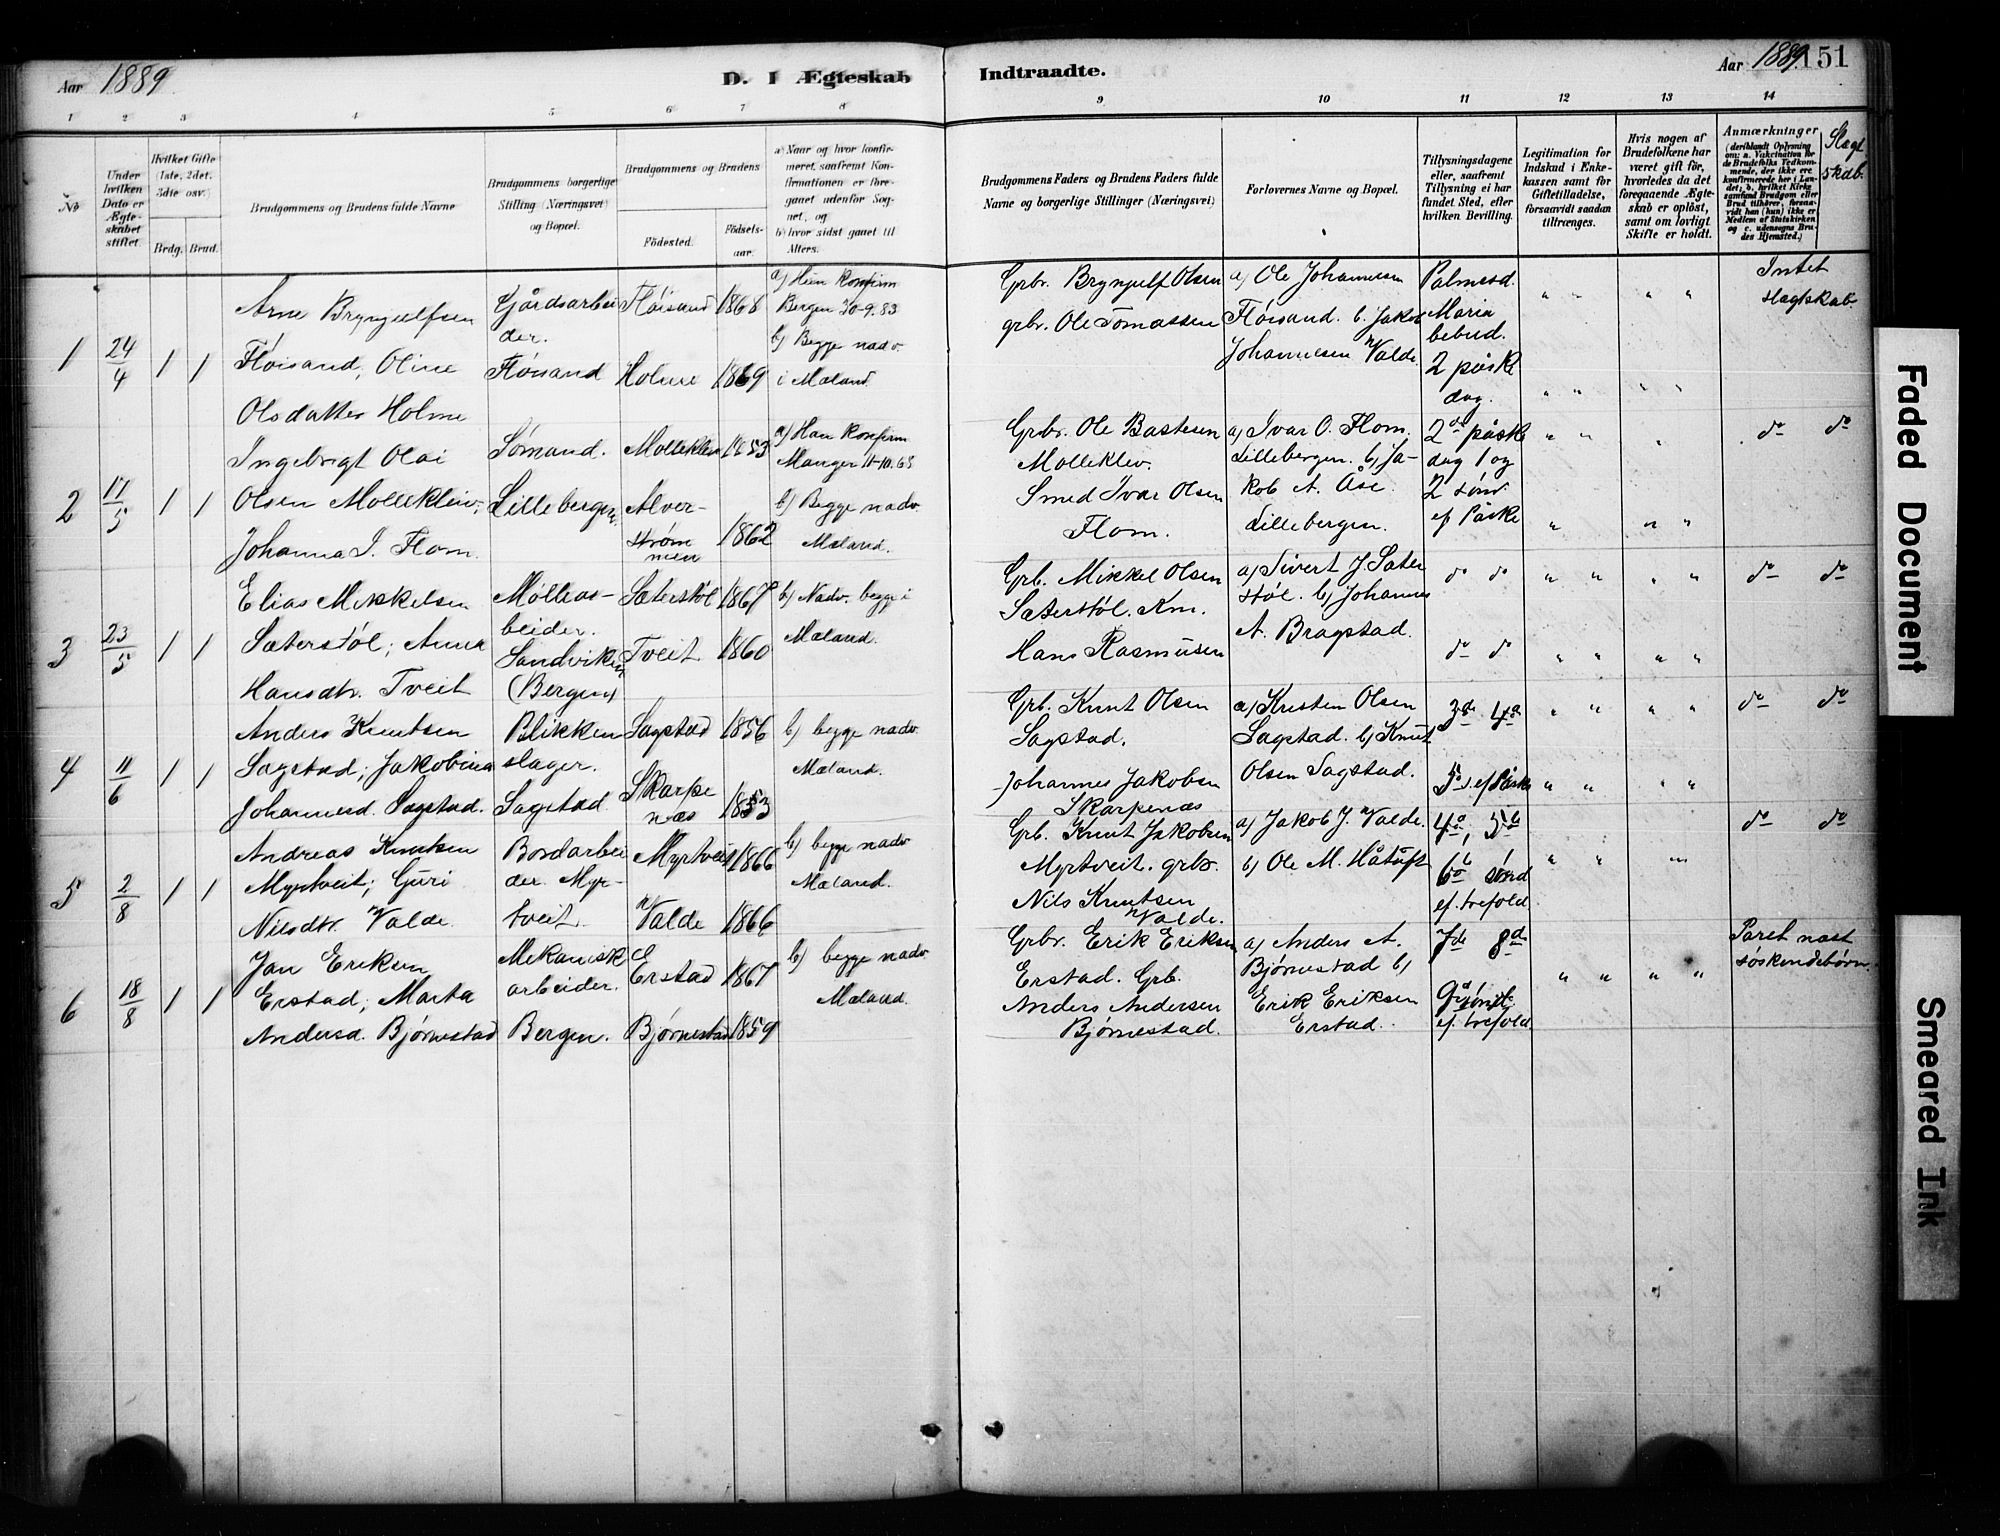 Aar 1889.
D. I Ægteskab
Indtraadte.
Aar 1889. 151
1 2 3 4 5 6 7 8
9 10 11 12 13 14
No
Under hvilken Dato er Ægteskabet stiftet.
Hvilket Gifte (1ste, 2det, 3die osv.)
Brdg. Brud.
Brudgommens og Brudens fulde Navne
Brudgommens borgerlige Stilling (Næringsvei) og Bopæl.
Brudgommens og Brudens
Födested.
Födselsaar.
a) Naar og hvor konfirmeret, saafremt Konfirmationen er foregaaet udenför Sognet, og
b) hvor sidst gaaet til Alters.
Brudgommens Faders og Brudens Faders fulde Navne og borgerlige Stillinger (Næringsvei)
Forlovernes Navne og Bopæl.
Tillysningsdagene eller, saafremt Tillysning ei har fundet Sted, efter hvilken Bevilling.
Legitimation for Indskud i Enkekassen samt for Giftetilladelse, forsaavidt saadan tiltrænges.
Hvis nogen af Brudefolkene har været gift för, hvorledes da det foregaaende Ægteskab er oplöst, samt om lovligt Skifte er holdt.
Anmærkninger (deriblandt Oplysning om: a. Vakcination for de Brudefolks Vedkommende, der ikke ere konfirmerede her i Landet; b. hvilket Kirkesamfund Brudgom eller Brud tilhörer, forsaavidt han (hun) ikke er Medlem af Statskirken og c. udensogns Brudes Hjemsted.)
Slægtskab.
1 24/4 1 1
Arne Bryngelfsen
Fløisand; Oline
Olsdatter Holme
Gjårdsarbeider.
Fløisand
Fløisand 1868
Holme 1869
a) Hun konfirm
Bergen 30-9.83
b) Begge nadv.
i Mæland.
Grbr. Bryngulf Olsen
grbr. Ole Tomassen
a) Ole Johannesen
Fløisand. b. Jakob
Johannesen n/Valde.
Palmesd.
Maria
bebud.
2 påske
dag.
Intet
slægtskab
2 11/5 1 1
Ingebrigt Olai
Olsen Molleklev;
Johanna I. Flom.
Sømand.
Lillebergen.
Molleklev 1853
Alverstrømmen 1862
a) Han konfirm
Manger 11-10.68
b) Begge nadv.
Mæland.
Grbr. Ole Bastesen
Molleklev.
Smed Ivar Olsen
Flom.
a) Ivar O. Flom.
Lillebergen. b) Jakob A. Åse
Lillebergen.
2den påske
dag 1 og
2 sønd
ef. Påske
do do
3 23/5 1 1
Elias Mikkelsen
Sæterstøl; Anna
Hansdtr. Tveit
Møllearbeider.
Sandviken
(Bergen)
Sæterstøl 1867
Tveit 1860
b) Nadv. begge i
Mæland.
Grb. Mikkel Olsen
Sæterstøl. Km.
Hans Rasmusen
a) Sivert J. Sæterstøl. b) Johannes
A. Bragstad.
do do
do do
do do
4 11/6 1 1
Anders Knutsen
Sagstad; Jakobina
Johannesd. Sagstad.
Blikkenslager.
Sagstad
Sagstad 1856
Skarpenæs 1853
b) begge nadv.
Mæland.
Grb. Knut Olsen
Sagstad.
Johannes Jakobsen
Skarpenæs
a) Kristen Olsen
Sagstad. b) Knut
Olsen Sagstad.
3de 4de
5te s. ef Påske
do do
5 2/8 1 1
Andreas Knutsen
Myrtveit; Guri
Nilsdtr. n/Valde.
Bordarbeider. Myrtveit.
Myrtveit 1866
n/Valde 1866
b) begge nadv
Mæland.
Grb. Knut Jakobsen
Myrtveit. grbr.
Nils Knutsen
n/Valde.
a) Jakob J. n/Valde.
b) Ole M. Håtuft
4de, 5te
6te sønd
ef. trefold
do do
6 18/8 1 1
Jan Eriksen
Erstad; Marta
Andersd. Bjørnestad
Mekanisk
arbeider.
Bergen.
Erstad 1867
Bjørnestad 1859
b) begge nadv.
Mæland.
Grbr. Erik Eriksen
Erstad. Grb.
Anders Andersen
Bjørnestad.
a) Anders A.
Bjørnestad b)
Erik Eriksen
Erstad.
7de 8de
9de sønd.
ef. trefold.
Paret næst
søskendebørn.
Faded Document
Smeared Ink